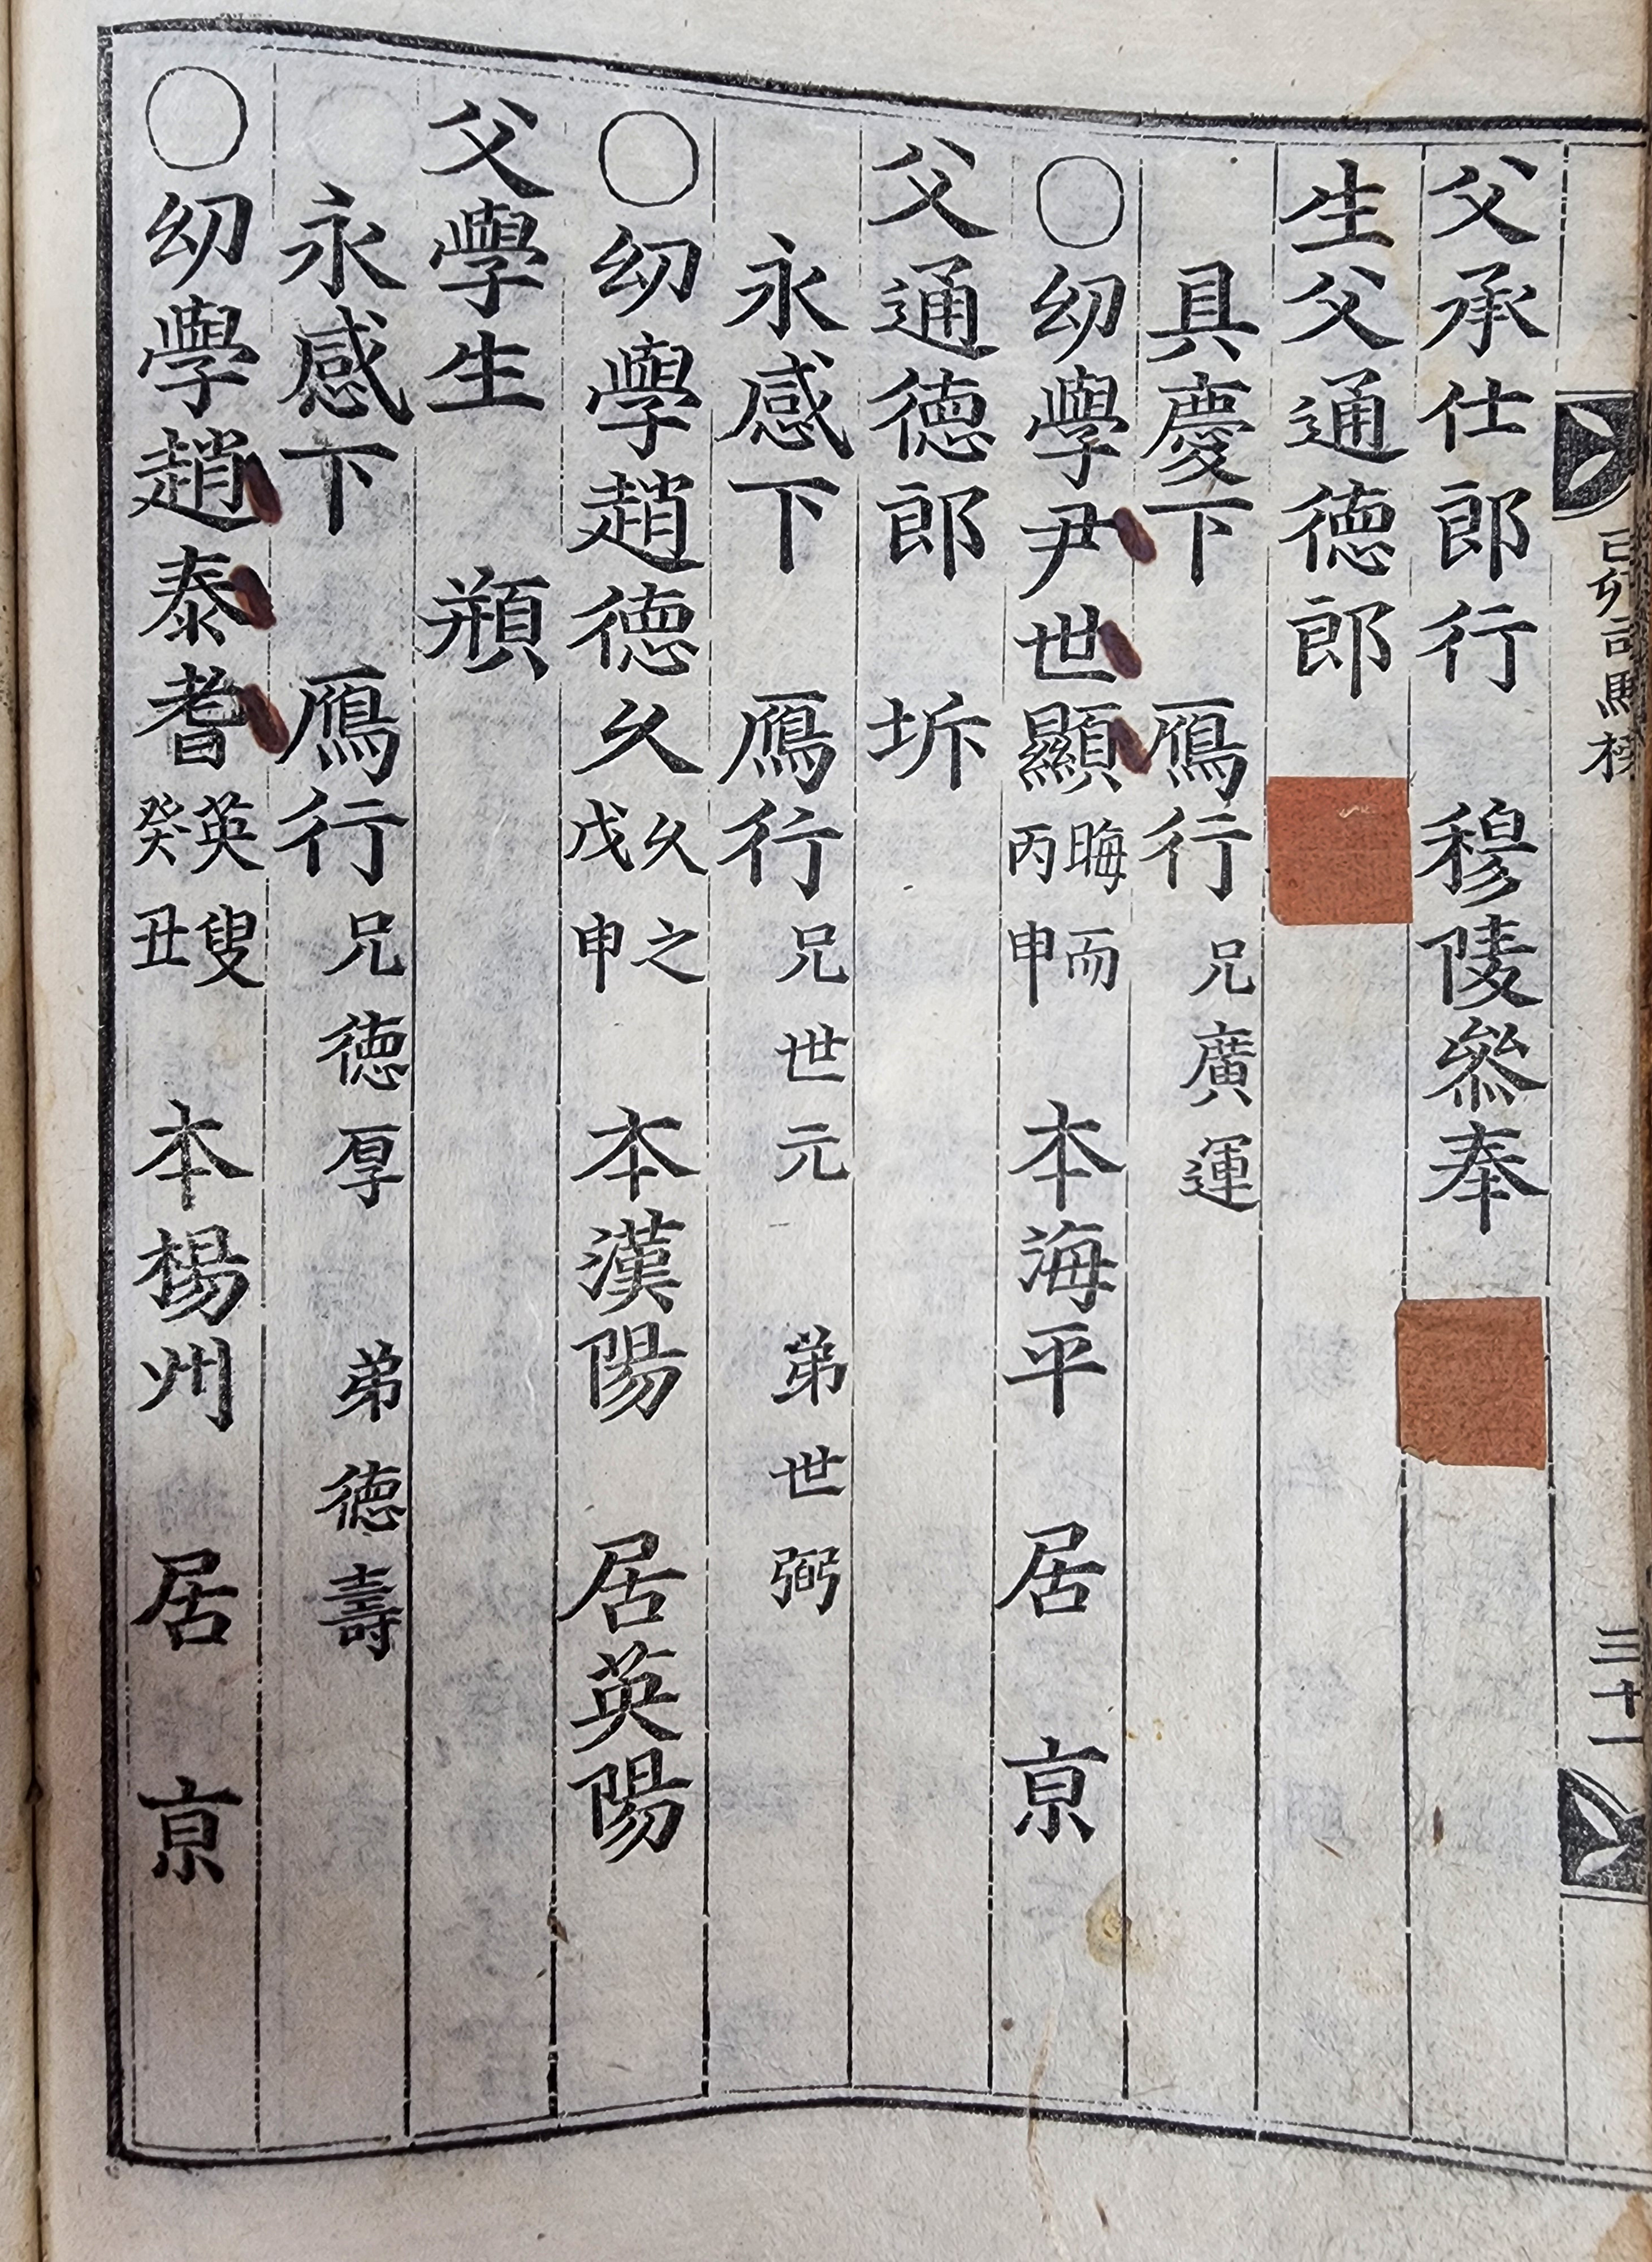 己卯司馬榜
三十一
父承仕郎行 穆陵參奉
生父通德郎
具慶下 鴈行 兄廣運
○幼學尹世顯 晦而 丙申 本海平 居 京
父通德郎 坼
永感下 鴈行 兄世元 弟世弼
○幼學趙德久 久之 戊申 本漢陽 居英陽
父學生 頩
永感下 鴈行 兄德厚 弟德壽
○幼學趙泰耆 英叟 癸丑 本楊州 居 京